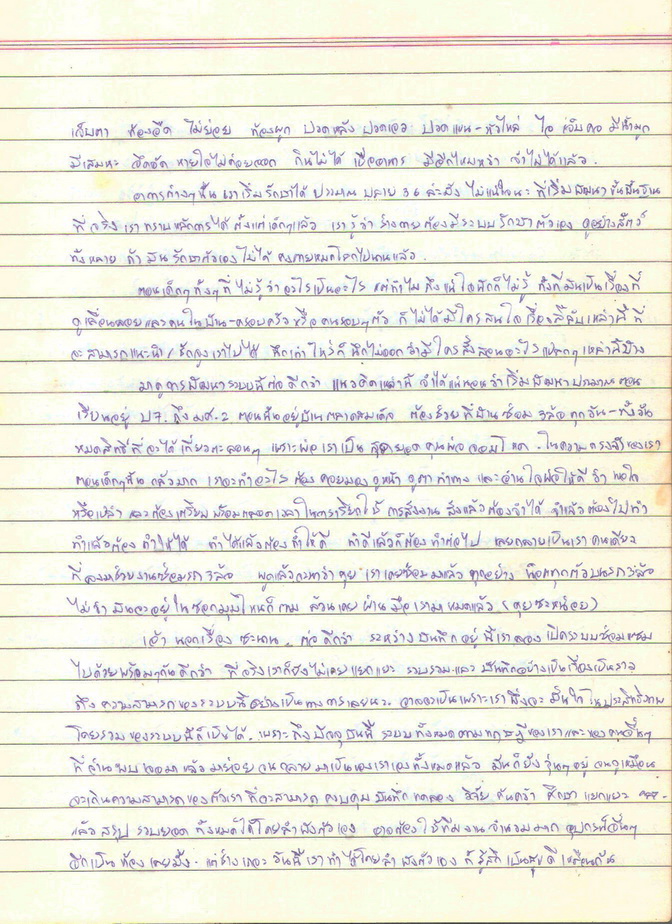 เจ็บตา ท้องอืด ไม่ย่อย ท้องผูก ปวดหลัง ปวดเอว ปวดแขน-หัวไหล่ ไอ เจ็บคอ มีน้ำมูก
มีเสมหะ อึดอัด หายใจไม่ค่อยออก กินไม่ได้ เบื่ออาหาร มีอีกไหมหว่า จำไม่ได้แล้ว.
อาการต่างๆนั้น เราเริ่มรักษาได้ ประมาณ ปลาย 36 ล่ะมั้ง ไม่แน่ใจนะ ที่เริ่มพัฒนาขั้นพื้นฐาน
ที่จริงเราทราบหลักการได้ตั้งแต่เด็กๆแล้ว เรารู้ว่า ร่างกายต้องมีระบบรักษาตัวเอง ดูอย่างสัตว์
ทั้งหลาย ถ้ามันรักษาตัวเองไม่ได้ คงตายหมดโลกไปนานแล้ว.
ตอนเด็กๆทั้งๆที่ไม่รู้ว่าอะไรเป็นอะไร แต่ทำไมถึงแน่ใจนักก็ไม่รู้ ทั้งที่มันเป็นเรื่องที่
ดูเลื่อนลอยและคนในบ้าน-ครอบครัว หรือ คนรอบๆตัว ก็ไม่ได้มีใครสนใจเรื่องลี้ลับเหล่านี้ ที่
จะสามารถแนะนำ/ชักจูงเราไปได้ นึกเท่าไหร่ก็นึกไม่ออกว่ามีใครสั่งสอนอะไรแปลกๆเหล่านี้บ้าง
มาดูการพัฒนาระบบนี้ต่อดีกว่า แนวคิดเหล่านี้ จำได้แน่นอนว่าเริ่มพัฒนาประมาณตอน
เรียนอยู่ ป.7 ถึง มศ.2 ตอนนั้นอยู่บ้านตลาดสมเด็จ ต้องช่วยที่บ้านซ่อม 3ล้อทุกวัน-ทั้งวัน
หมดสิทธิ์ที่จะได้เที่ยวตะลอนๆ เพราะพ่อเราเป็น สุดยอดคุณพ่อจอมโหด. ในความทรงจำของเรา
ตอนเด็กๆนั้น กลัวมาก เราจะทำอะไรต้องคอยมองดูหน้า ดูตา ท่าทาง และอ่านใจพ่อให้ดีว่า พอใจ
หรือเปล่า และต้องเตรียมพร้อมตลอดเวลาในการเรียกใช้ การสั่งงาน สั่งแล้วต้องจำได้ จำแล้วต้องไปทำ
ทำแล้วต้องทำให้ได้ ทำได้แล้วต้องทำให้ดี ทำดีแล้วก็ต้องทำต่อไป เลยกลายเป็นเราคนเดียว
ที่ลงมาช่วยงานซ่อมรถ 3ล้อ พูดแล้วจะหาว่าคุย เราเคยซ่อมมาแล้วทุกอย่าง น็อตทุกตัวบนรถ 3ล้อ
ไม่ว่ามันจะอยู่ในซอกมุมไหนก็ตาม ล้วนเคยผ่านมือเรามาหมดแล้ว (คุยซะหน่อย)
เอ้า นอกเรื่องซะนาน. ต่อดีกว่า ระหว่างบันทึกอยู่นี้เราลองเปิดระบบซ่อมแซม
ไปด้วยพร้อมๆกันดีกว่า ที่จริงเราก็ยังไม่เคยแยกแยะ รวบรวมและบันทึกอย่างเป็นเรื่องเป็นราว
ถึงความสามารถของระบบนี้อย่างเป็นทางการเลยนะ. อาจจะเป็นเพราะเรา มั่นใจในประสิทธิภาพ
โดยรวมของระบบนี้ก็เป็นได้. เพราะถึงปัจจุบันนี้ ระบบทั้งหมดตามทฤษฎีของเราและของคนอื่นๆ
ที่อ่านพบเจอมาแล้วมาย่อยจนกลายมาเป็นของเราเองทั้งหมดแล้ว มันก็ยังวุ่นๆอยู่ จนดูเหมือน
จะเกินความสามารถของตัวเรา ที่จะสามารถควบคุม บันทึก ทดลอง วิจัย ค้นคว้า ศึกษา แยกแยะ ฯลฯ.
แล้วสรุป รวบยอด ทั้งหมดได้โดยลำพังตัวเอง อาจต้องใช้ทีมงานจำนวนมาก อุปกรณ์อื่นๆ
อีกเป็นห้องเลยมั้ง. แต่ช่างเถอะ วันนี้เราทำได้โดยลำพังตัวเอง ก็รู้สึกเป็นสุขดีเหมือนกัน